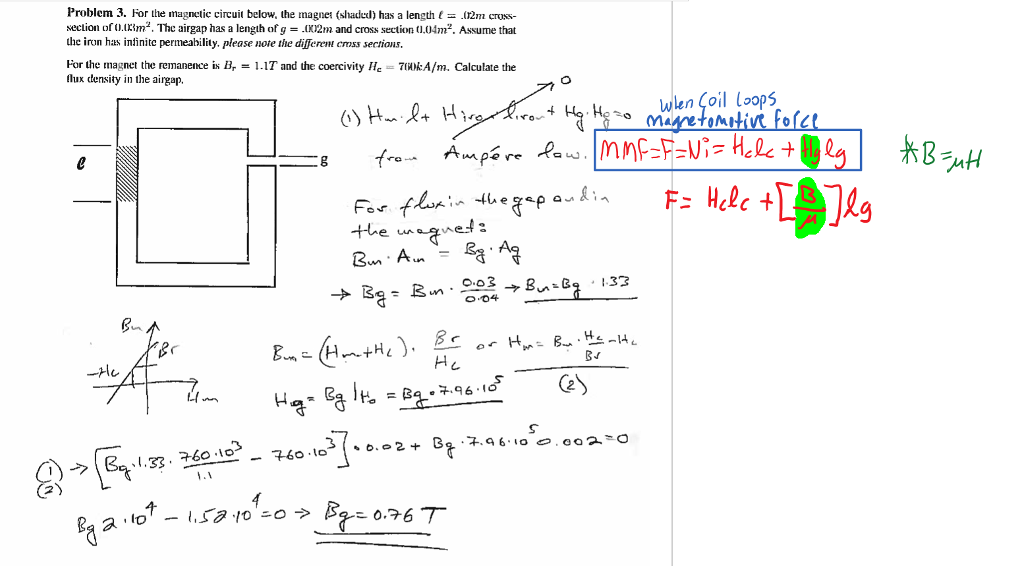 Problem 3. For the magnetic circuit below, the magnet (shaded) has a length ℓ = .02m cross-
section of 0.03m². The airgap has a length of g = .002m and cross section 0.04m². Assume that
the iron has infinite permeability. please note the different cross sections.
For the magnet the remanence is Bᵣ = 1.1T and the coercivity H꜀ = 760kA/m. Calculate the
flux density in the airgap.
0
(1) Hm·l + Hiron liron + Hg·Hg=0
from Ampére law.
when Coil loops
magnetomotive force
MMF=F=Ni= Hclc + Hglg
*B=μH
F= Hclc + [B/μ]lg
ℓ
g
For flux in the gap and in
the magnet:
Bm·Am = Bg·Ag
→ Bg = Bm · 0.03/0.04 → Bm=Bg · 1.33
Bm
Br
-Hc
Hm
Bm = (Hm+Hc)· Br/Hc or Hm= Bm·Hc/Br -Hc
(2)
Hg= Bg/μ₀ = Bg·7.96·10⁵
(1)(2) → [Bg·1.33· 760·10³/1.1 - 760·10³]·0.02+ Bg·7.96·10⁵ 0.002=0
Bg 2·10⁴ - 1.52·10⁴=0 → Bg=0.76 T